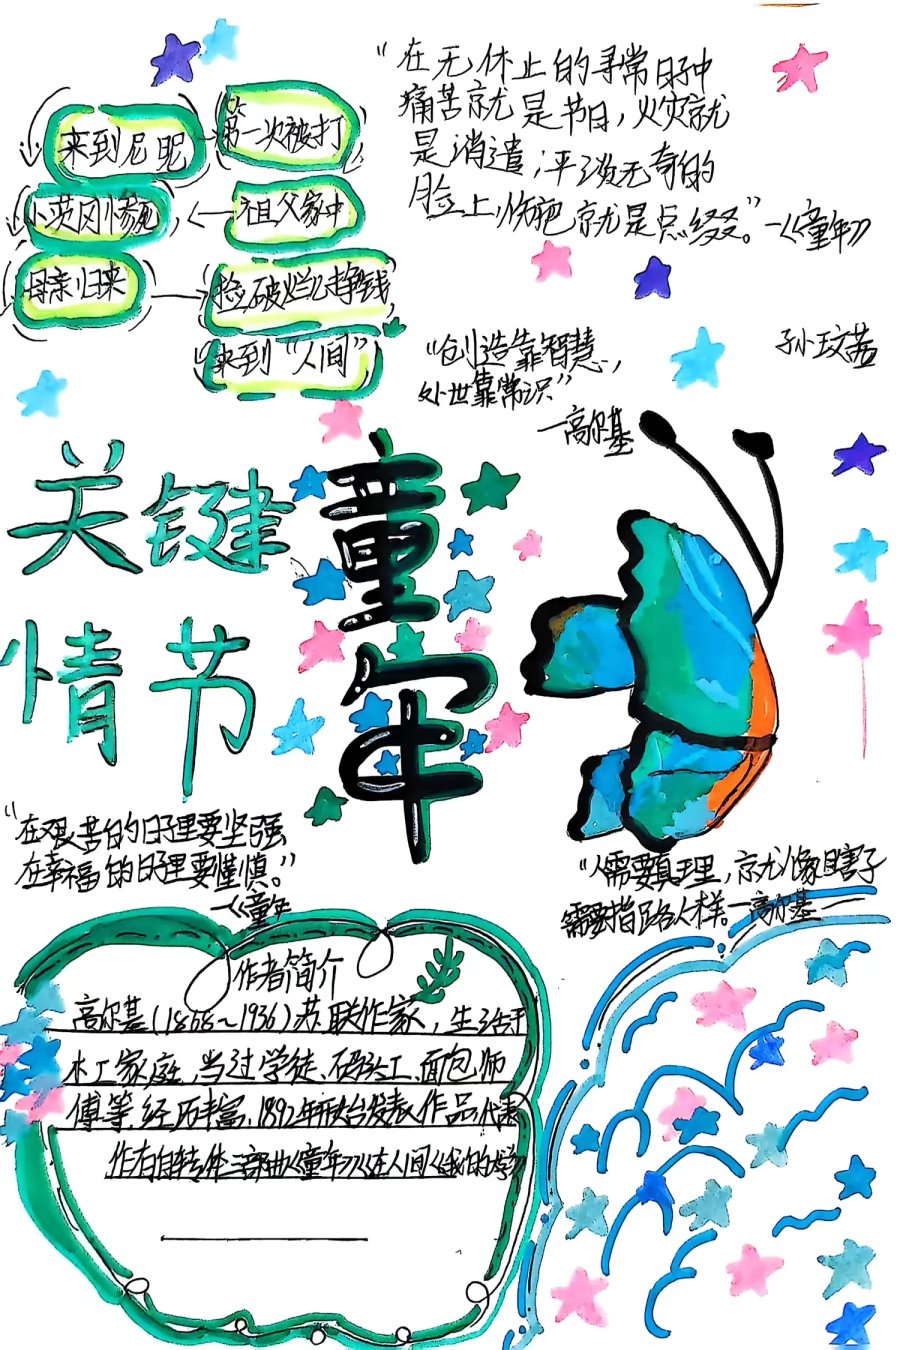 来到尼昵
第一次被打
小茨冈惨死
祖父家中
母亲归来
捡破烂儿挣钱
来到“人间”
“在无休止的寻常日子中
痛苦就是节日，火灾就
是消遣；平淡无奇的
脸上，伤疤就是点缀。”—《童年》
“创造靠智慧，
处世靠常识”
—高尔基
孙玟茜
关键
情节
童年
“在艰苦的日子里要坚强
在幸福的日子里要谨慎。”
—《童年
“人需要真理，就像瞎子
需要指路人一样。—高尔基
作者简介
高尔基（1868～1936）苏联作家，生活于
木工家庭，当过学徒、码头工、面包师
傅等，经历丰富、1892年开始发表作品，代表
作有自转体三部曲《童年》《在人间《我的大学》